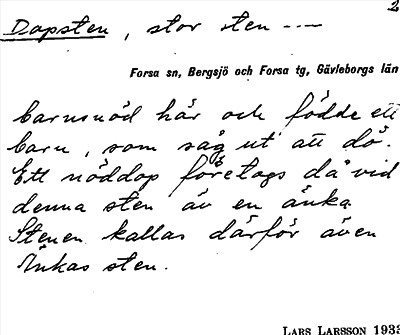 2
Dopsten, stor sten ---
Forsa sn, Bergsjö och Forsa tg, Gävleborgs län
barnsnöd här och födde ett
barn, som såg ut att dö.
Ett nöddop företogs då vid
denna sten av en änka
Stenen kallas därför även
Änkas sten.
LARS LARSSON 1933